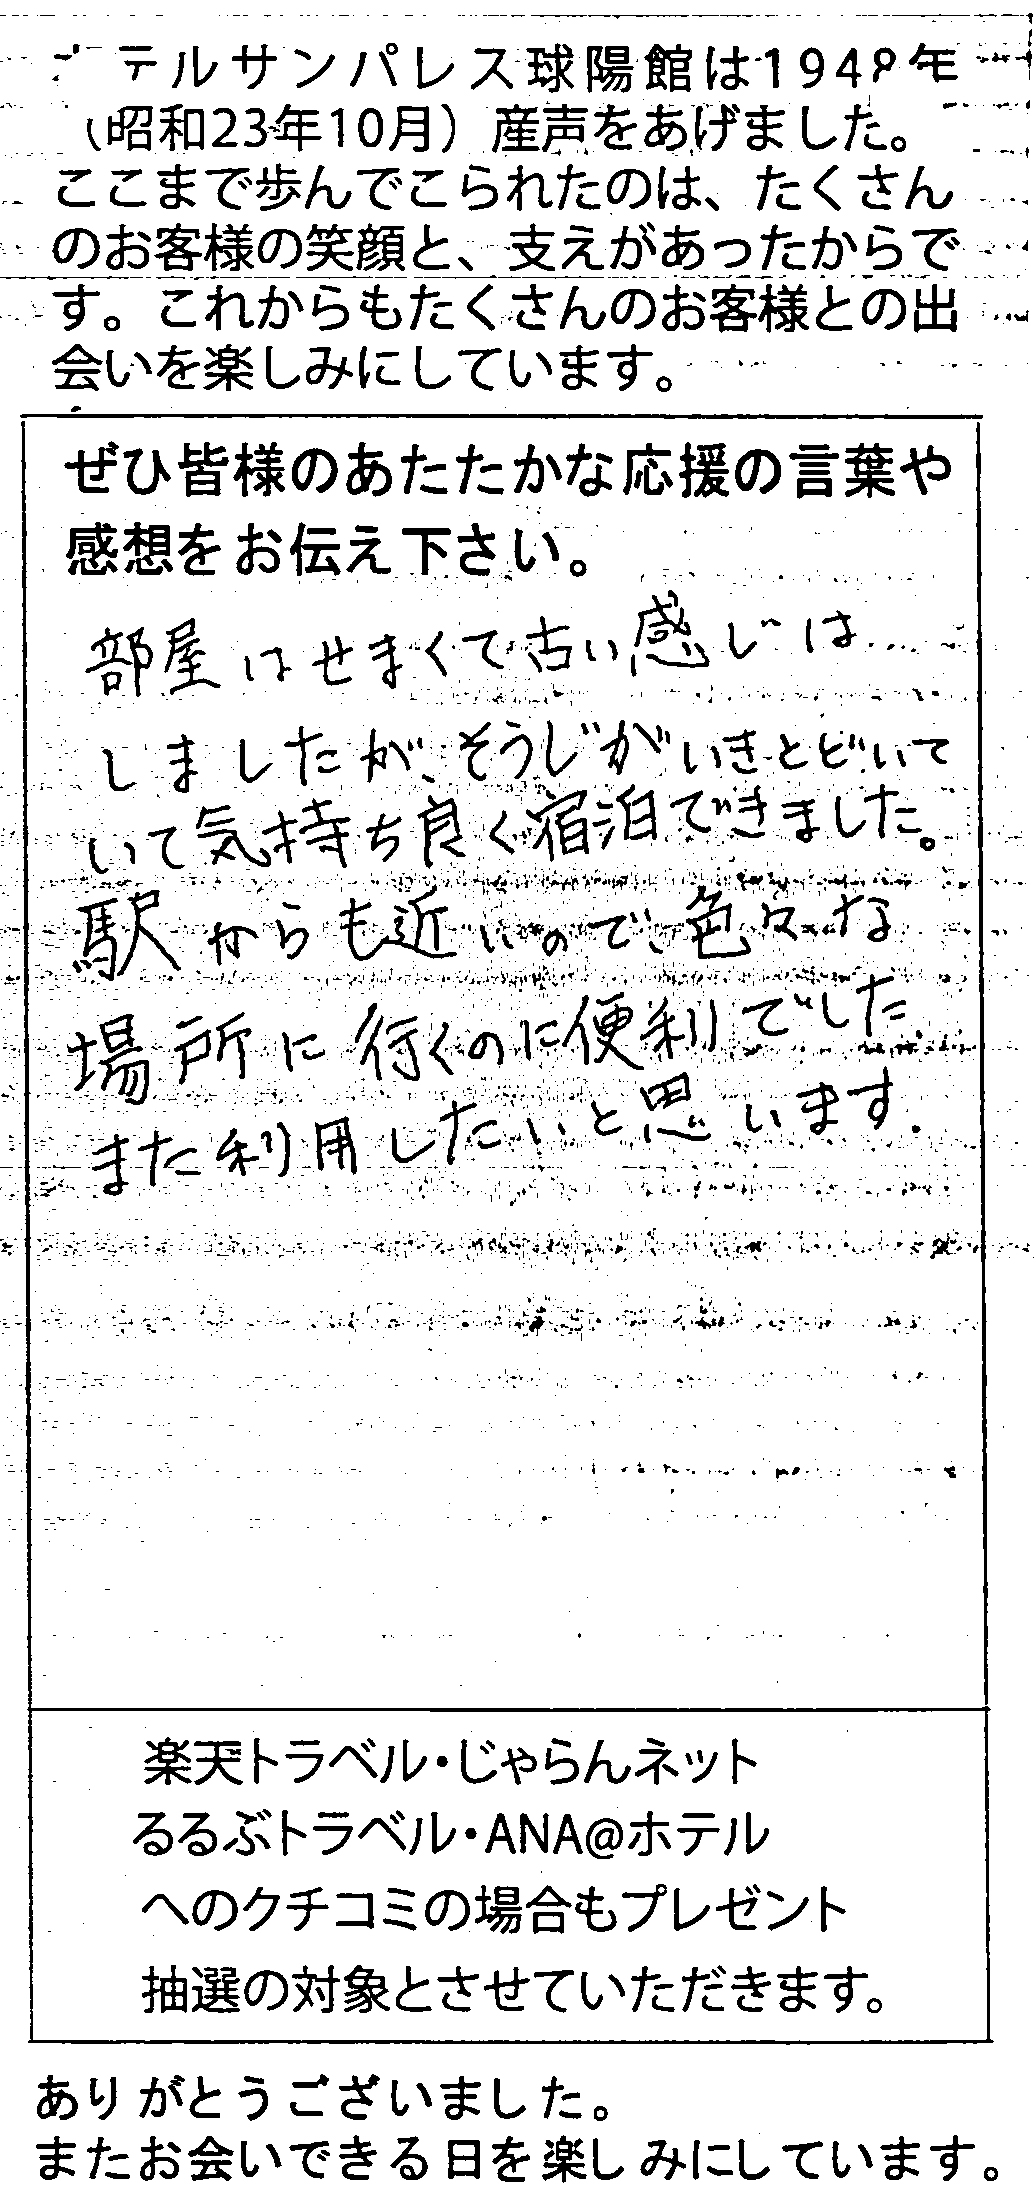 ホテルサンパレス球陽館は1948年
（昭和23年10月）産声をあげました。
ここまで歩んでこられたのは、たくさん
のお客様の笑顔と、支えがあったからで
す。これからもたくさんのお客様との出
会いを楽しみにしています。
ぜひ皆様のあたたかな応援の言葉や
感想をお伝え下さい。
部屋はせまくて古い感じは
しましたが、そうじがいきとどいて
いて気持ち良く宿泊できました。
駅からも近いので、色々な
場所に行くのに便利でした。
また利用したいと思います。
楽天トラベル・じゃらんネット
るるぶトラベル・ANA@ホテル
へのクチコミの場合もプレゼント
抽選の対象とさせていただきます。
ありがとうございました。
またお会いできる日を楽しみにしています。